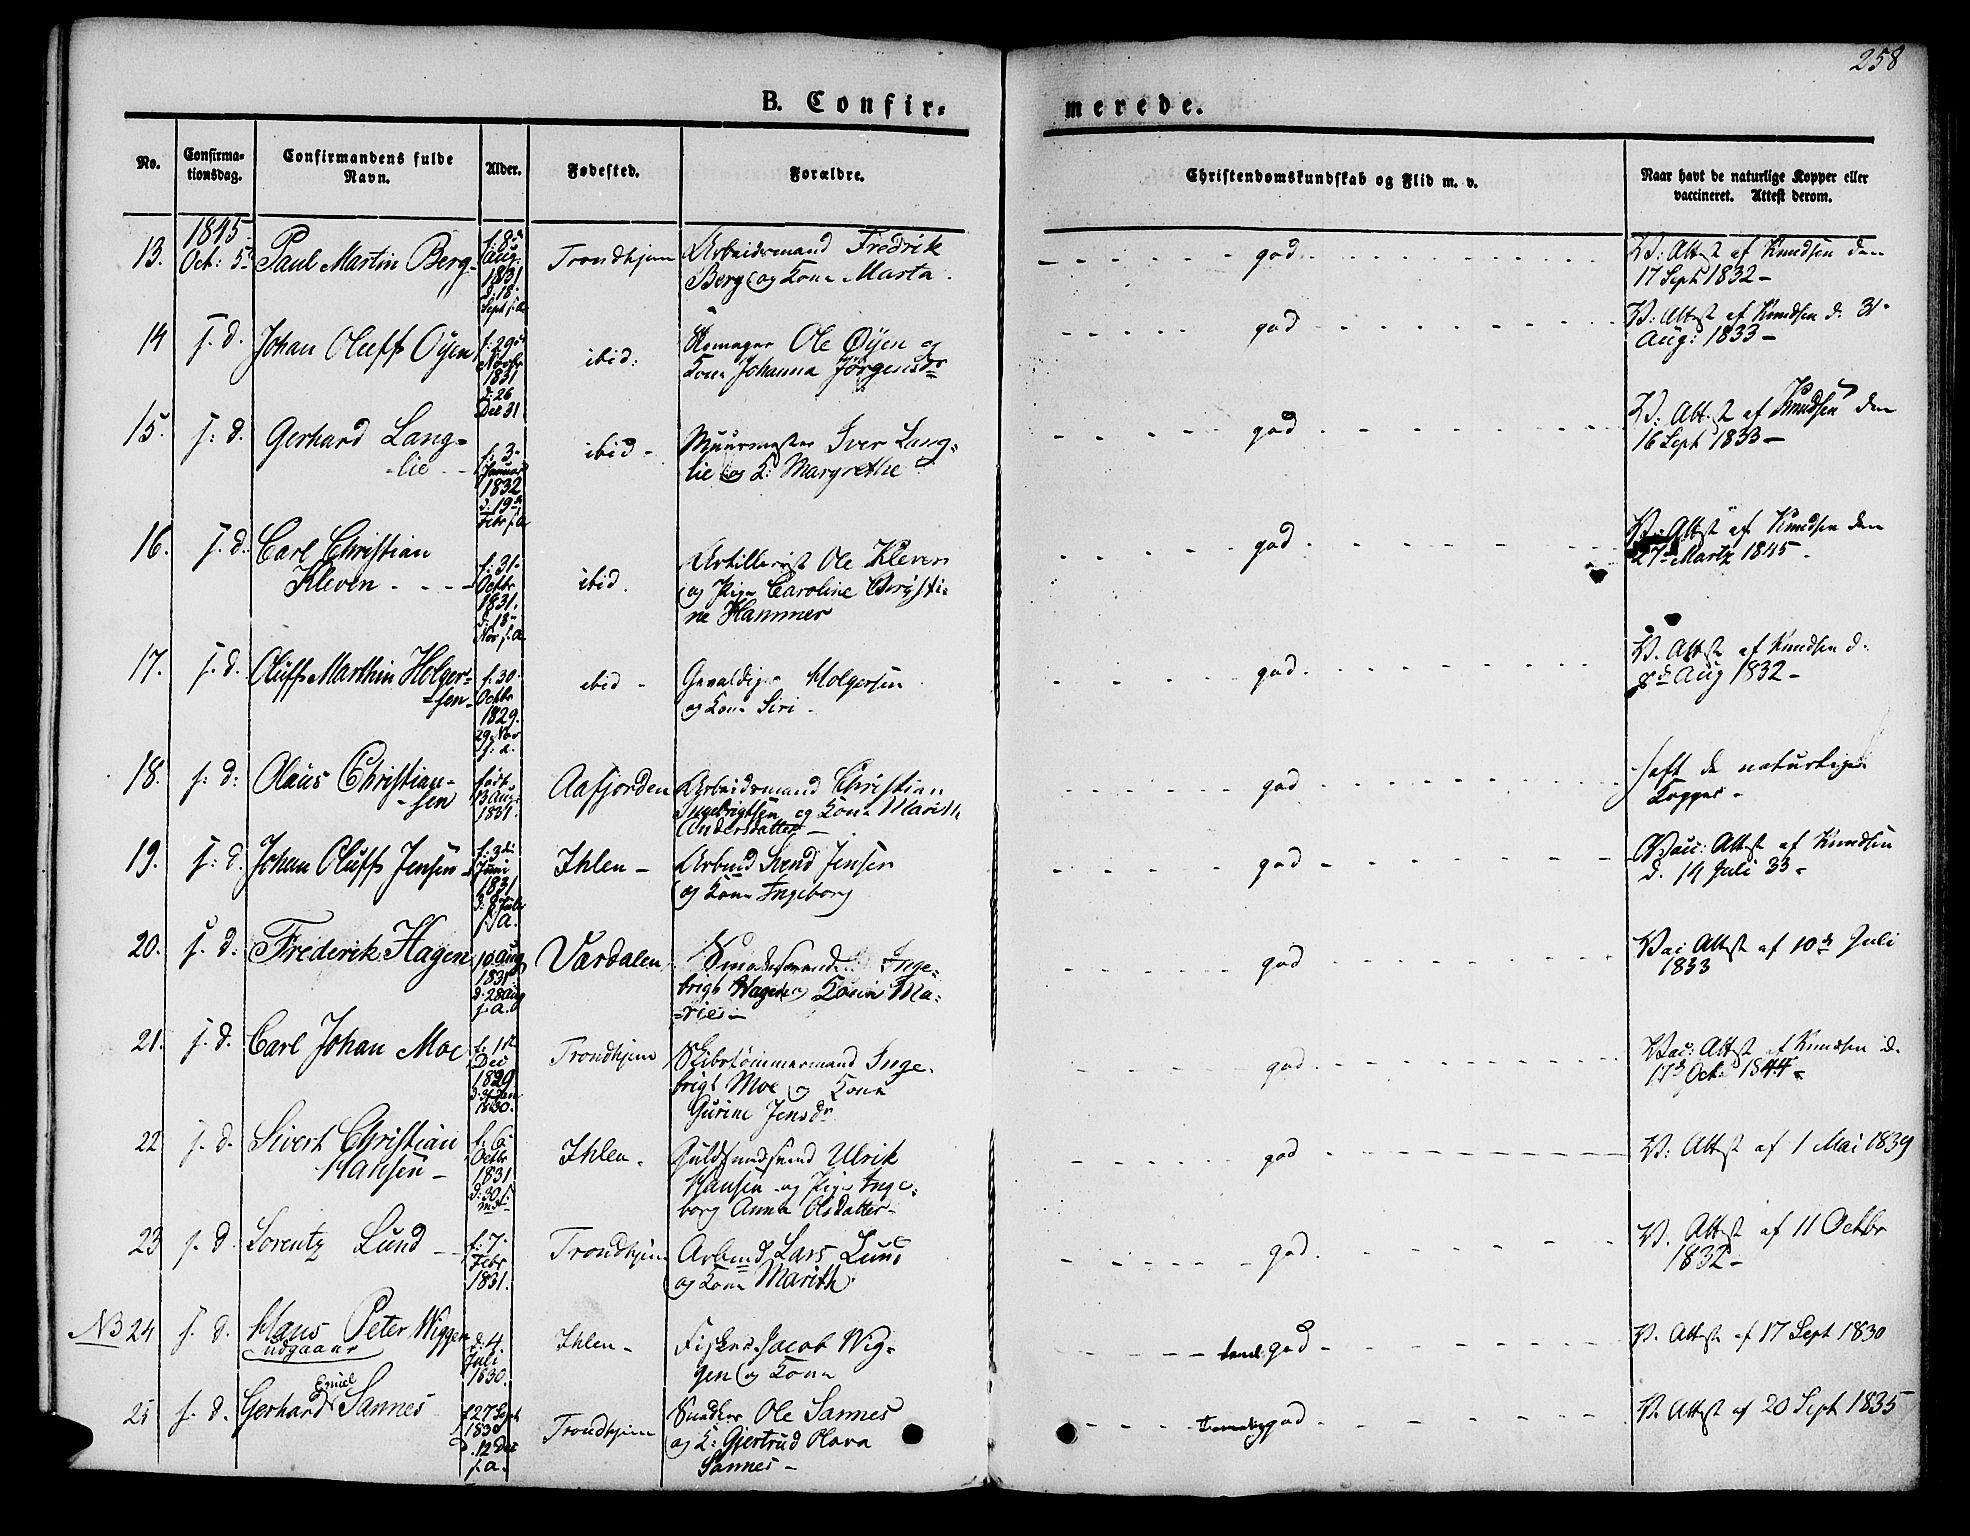 258
B. Confirmerede.
No. Confirmationsdag. Confirmandens fulde Navn. Alder. Fødested. Forældre. Christendomskundskab og Flid m. v. Naar havt de naturlige Kopper eller vaccineret. Attest derom.
1845
13. Oct: 5 Paul Martin Berg f: 8 Aug: 1831 d: 18 Sept s: a Trondhjem Arbeidsmand Fredrik
Berg og Kone Marta god V: Attest af Knudsen den
17 Sept 1832
14 s. d. Johan Oluff Oyen f: 29 Novbr 1831 d: 26 Dec 31 ibid: Ole Øyen og
Kone Johanna Jörgensdr god V: Attest af Knudsen d. 31
Aug: 1833
15. s: d. Gerhard Lang-
lie f: 3 Januar 1832 d. 19 Febr s: a ibid Muurmester Iver Lang-
lie og K: Margrethe god V: Attest af Knudsen den
16 Sept 1833
16. s. d. Carl Christian
Kleven f: 31 Octbr 1831. d: 18 Nov s. a ibid. Artillerist Ole Kleven
og Pige Caroline Christi-
ne Hammer god V: Attest af Knudsen den
27 Martz 1845
17. s. d. Oluff Marthin Holger-
sen f. 30 Octbr 1829. 29 Nov s: a. ibid Gevaldiger Holgersen
og Kone Siri god V. Attest af Knudsen d.
8 Aug 1832
18. s: d: Olaus Christian-
sen født 13 Aug 1831. Aafjorden Arbeidsmand Christian
Ingebrigtsen og Kone Marith
Andersdatter god haft de naturlige
Kopper
19. s: d Johan Oluff Jensen f: 3 Juni 1831 d: 8 Juli s: a. Ihlen Arbmd Svend Jensen
og Kone Ingeborg god Vac: Attest af Knudsen
d. 14 Juli 33
20. s. d: Frederik Hagen 10 Aug 1831 d: 28 Aug s. a. Værdalen Inge-
brigt Hagen Konen Ma-
rie god Vac Attest af 10 Juli
1833
21. s. d. Carl Johan Moe f: 1st Dec 1829. Jan 1830. Trondhjem Skibstömmermand Inge-
brigt Moe og Kone
Gurine Jensdr god Vac: Attest af Knudsen d.
17 Oct: 1844
22 s. d. Sivert Christian
Hansen f: 6 Octbr 1831 d: 30 Ihlen Guldsmedsvend Ulrik
Hansen og Pige Inge-
borg Anna Olsdatter god V: Attest af 1 Mai 1839
23 s. d Lorentz Lund f: 7 Febr 1831. Trondhjem Arbmd Lars Lund
og Kone Marith god V. Attest af 11 Octbr
1832
NB 24 s. d. Hans Peter Wiggen
udgaaer d: 4. Juli 1830. Ihlen Fisker Jacob Wig-
gen og Kone god V. Attest af 17 Sept 1830
25 s. d. Gerhard Emiel Sannes f 27 Sept d. 12 Dec s. a. Trondhjem Snedker Ole Sannes
og K: Gjertrud Olava
Sannes temelig god V. Attest af 20 Sept 1835